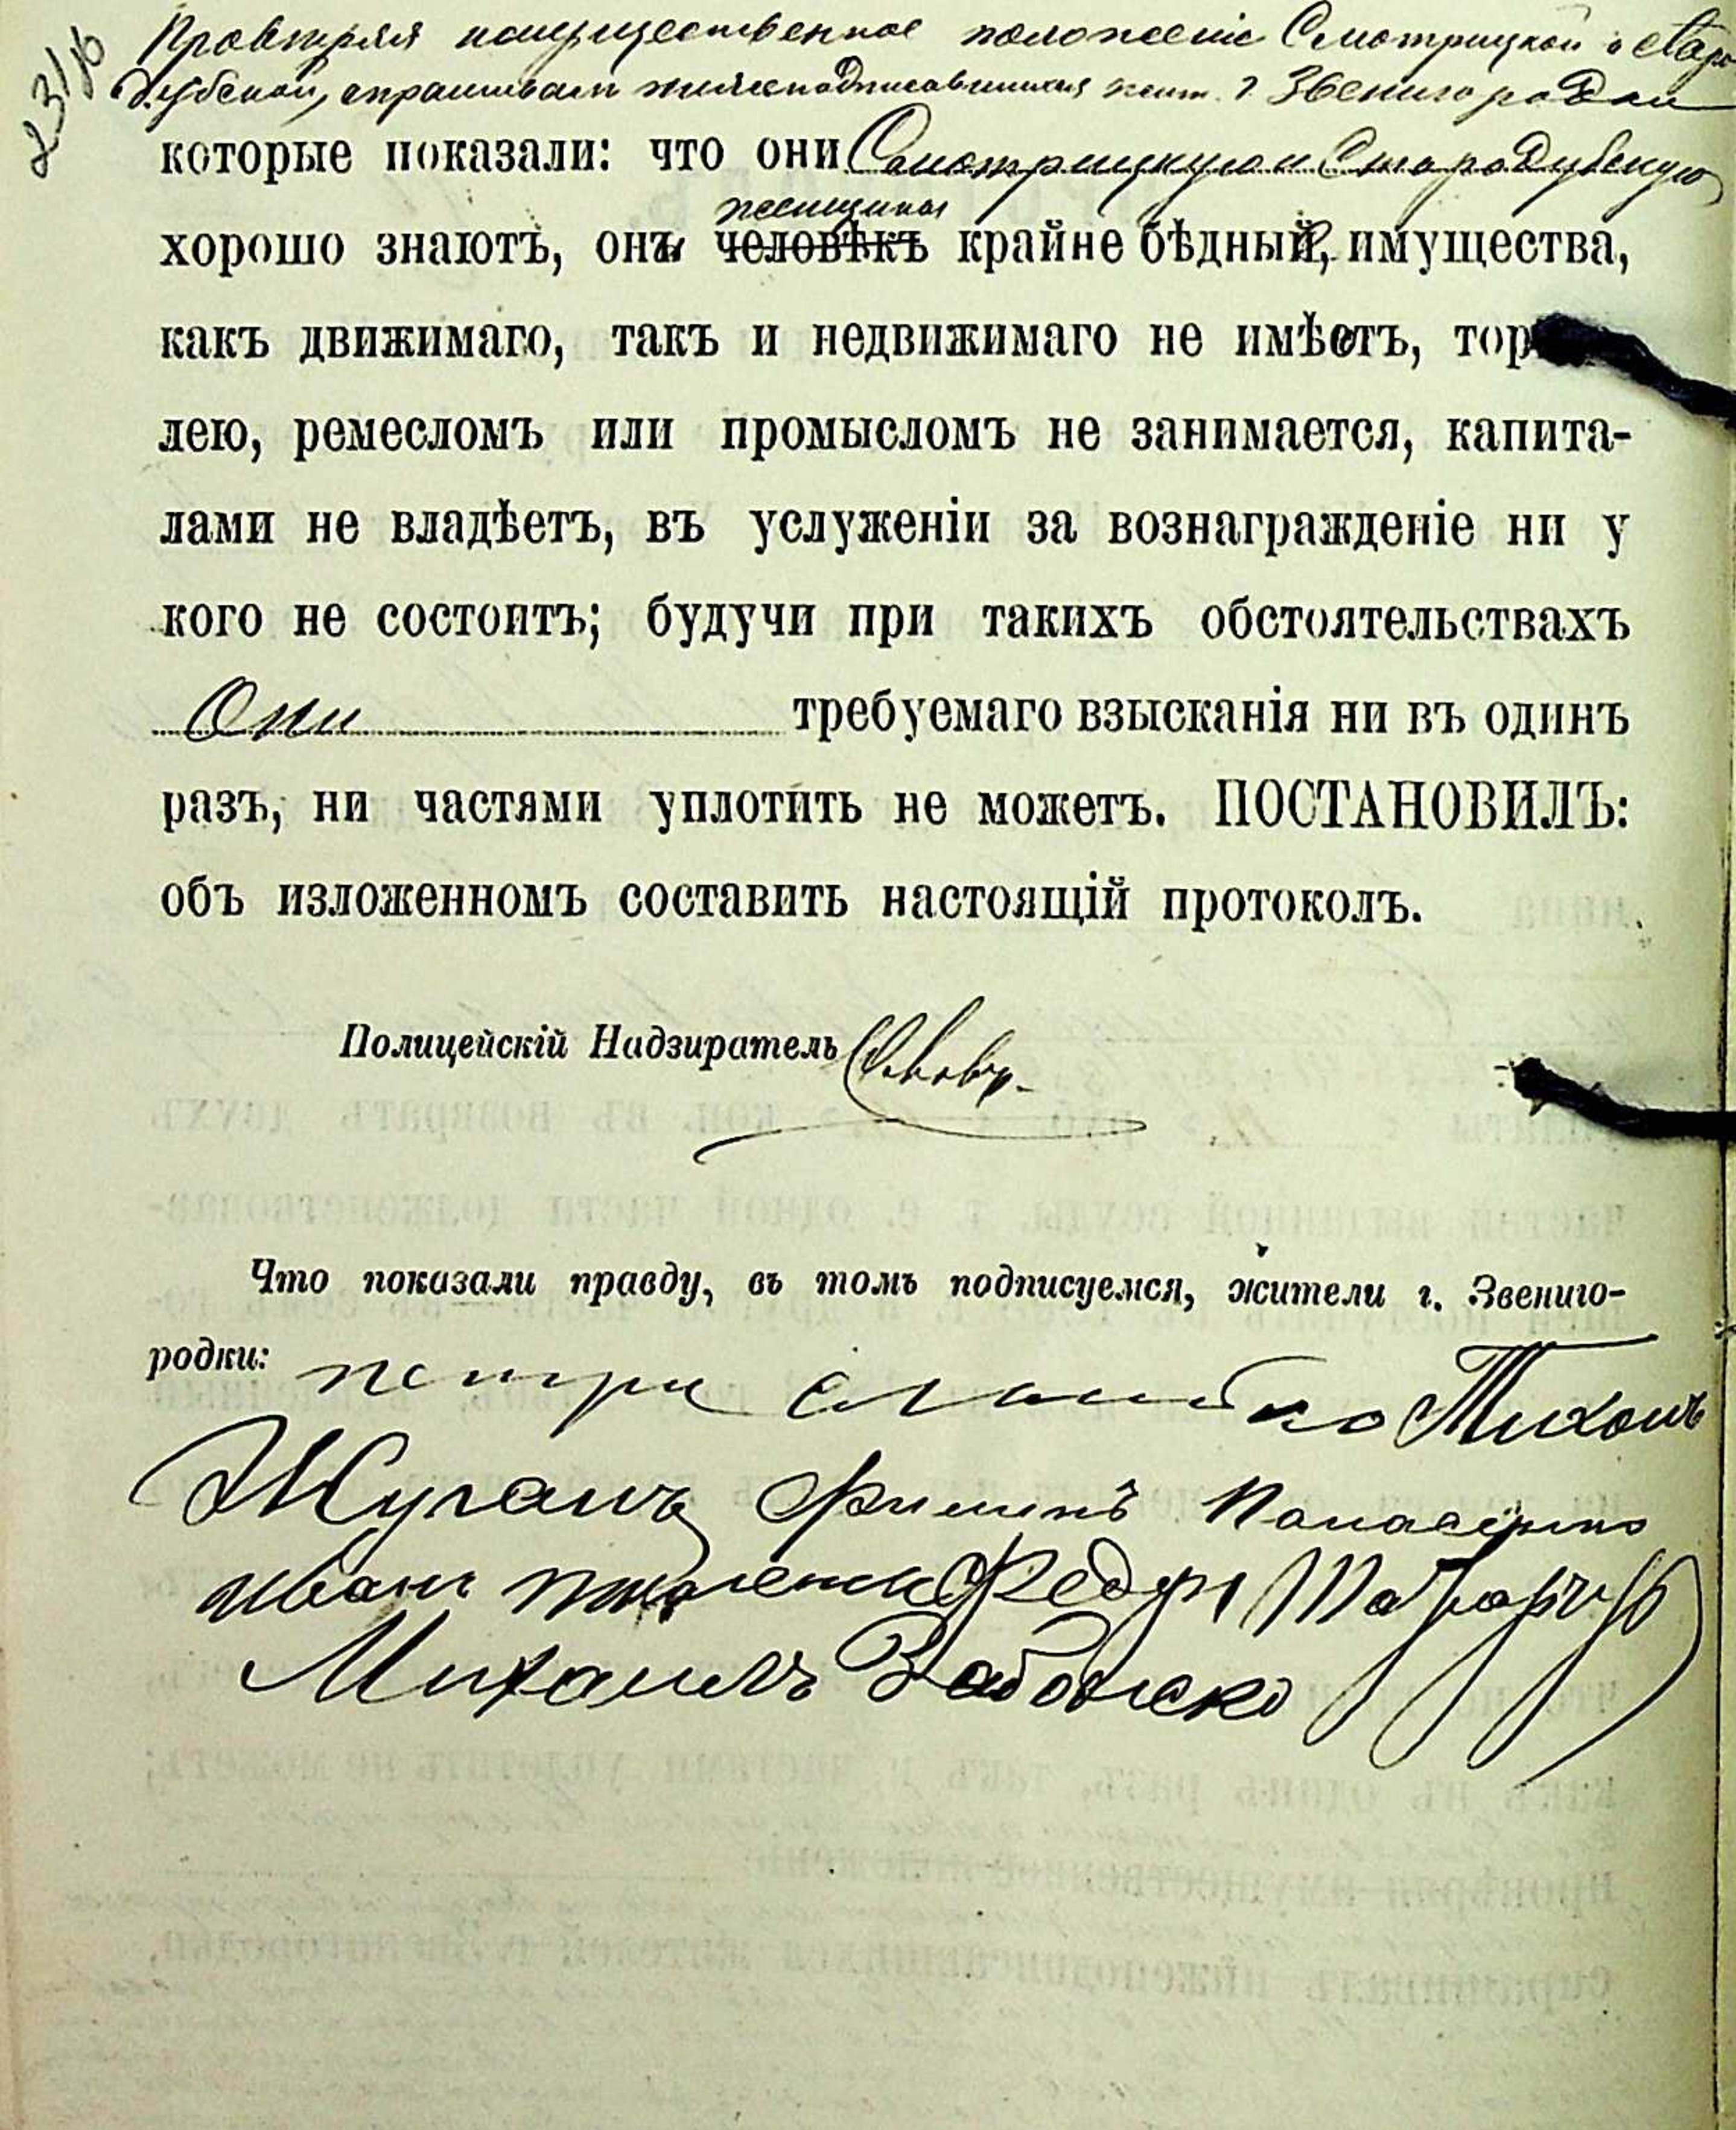 231/16
Провѣряя имущественное положеніе Смотрицкой и Старо
дубской, спрашивалъ нижеподписавшихся жит. г. Звенигородки
которые показали: что они Смотрицкую и Стародубскую
хорошо знаютъ, онѣ человѣкъ женщины крайне бѣдные, имущества,
какъ движимаго, такъ и недвижимаго не имѣютъ, тор
лею, ремесломъ или промысломъ не занимается, капита-
лами не владѣетъ, въ услуженіи за вознагражденіе ни у
кого не состоитъ; будучи при такихъ обстоятельствахъ
Они требуемаго взысканія ни въ одинъ
разъ, ни частями уплотить не можетъ. ПОСТАНОВИЛЪ:
объ изложенномъ составить настоящій протоколъ.
Полицейскій Надзиратель
Что показали правду, въ томъ подписуемся, жители г. Звениго-
родки: петри Тихонъ
Жуганъ Филипъ Панасенко
иванъ Федор
Михаилъ